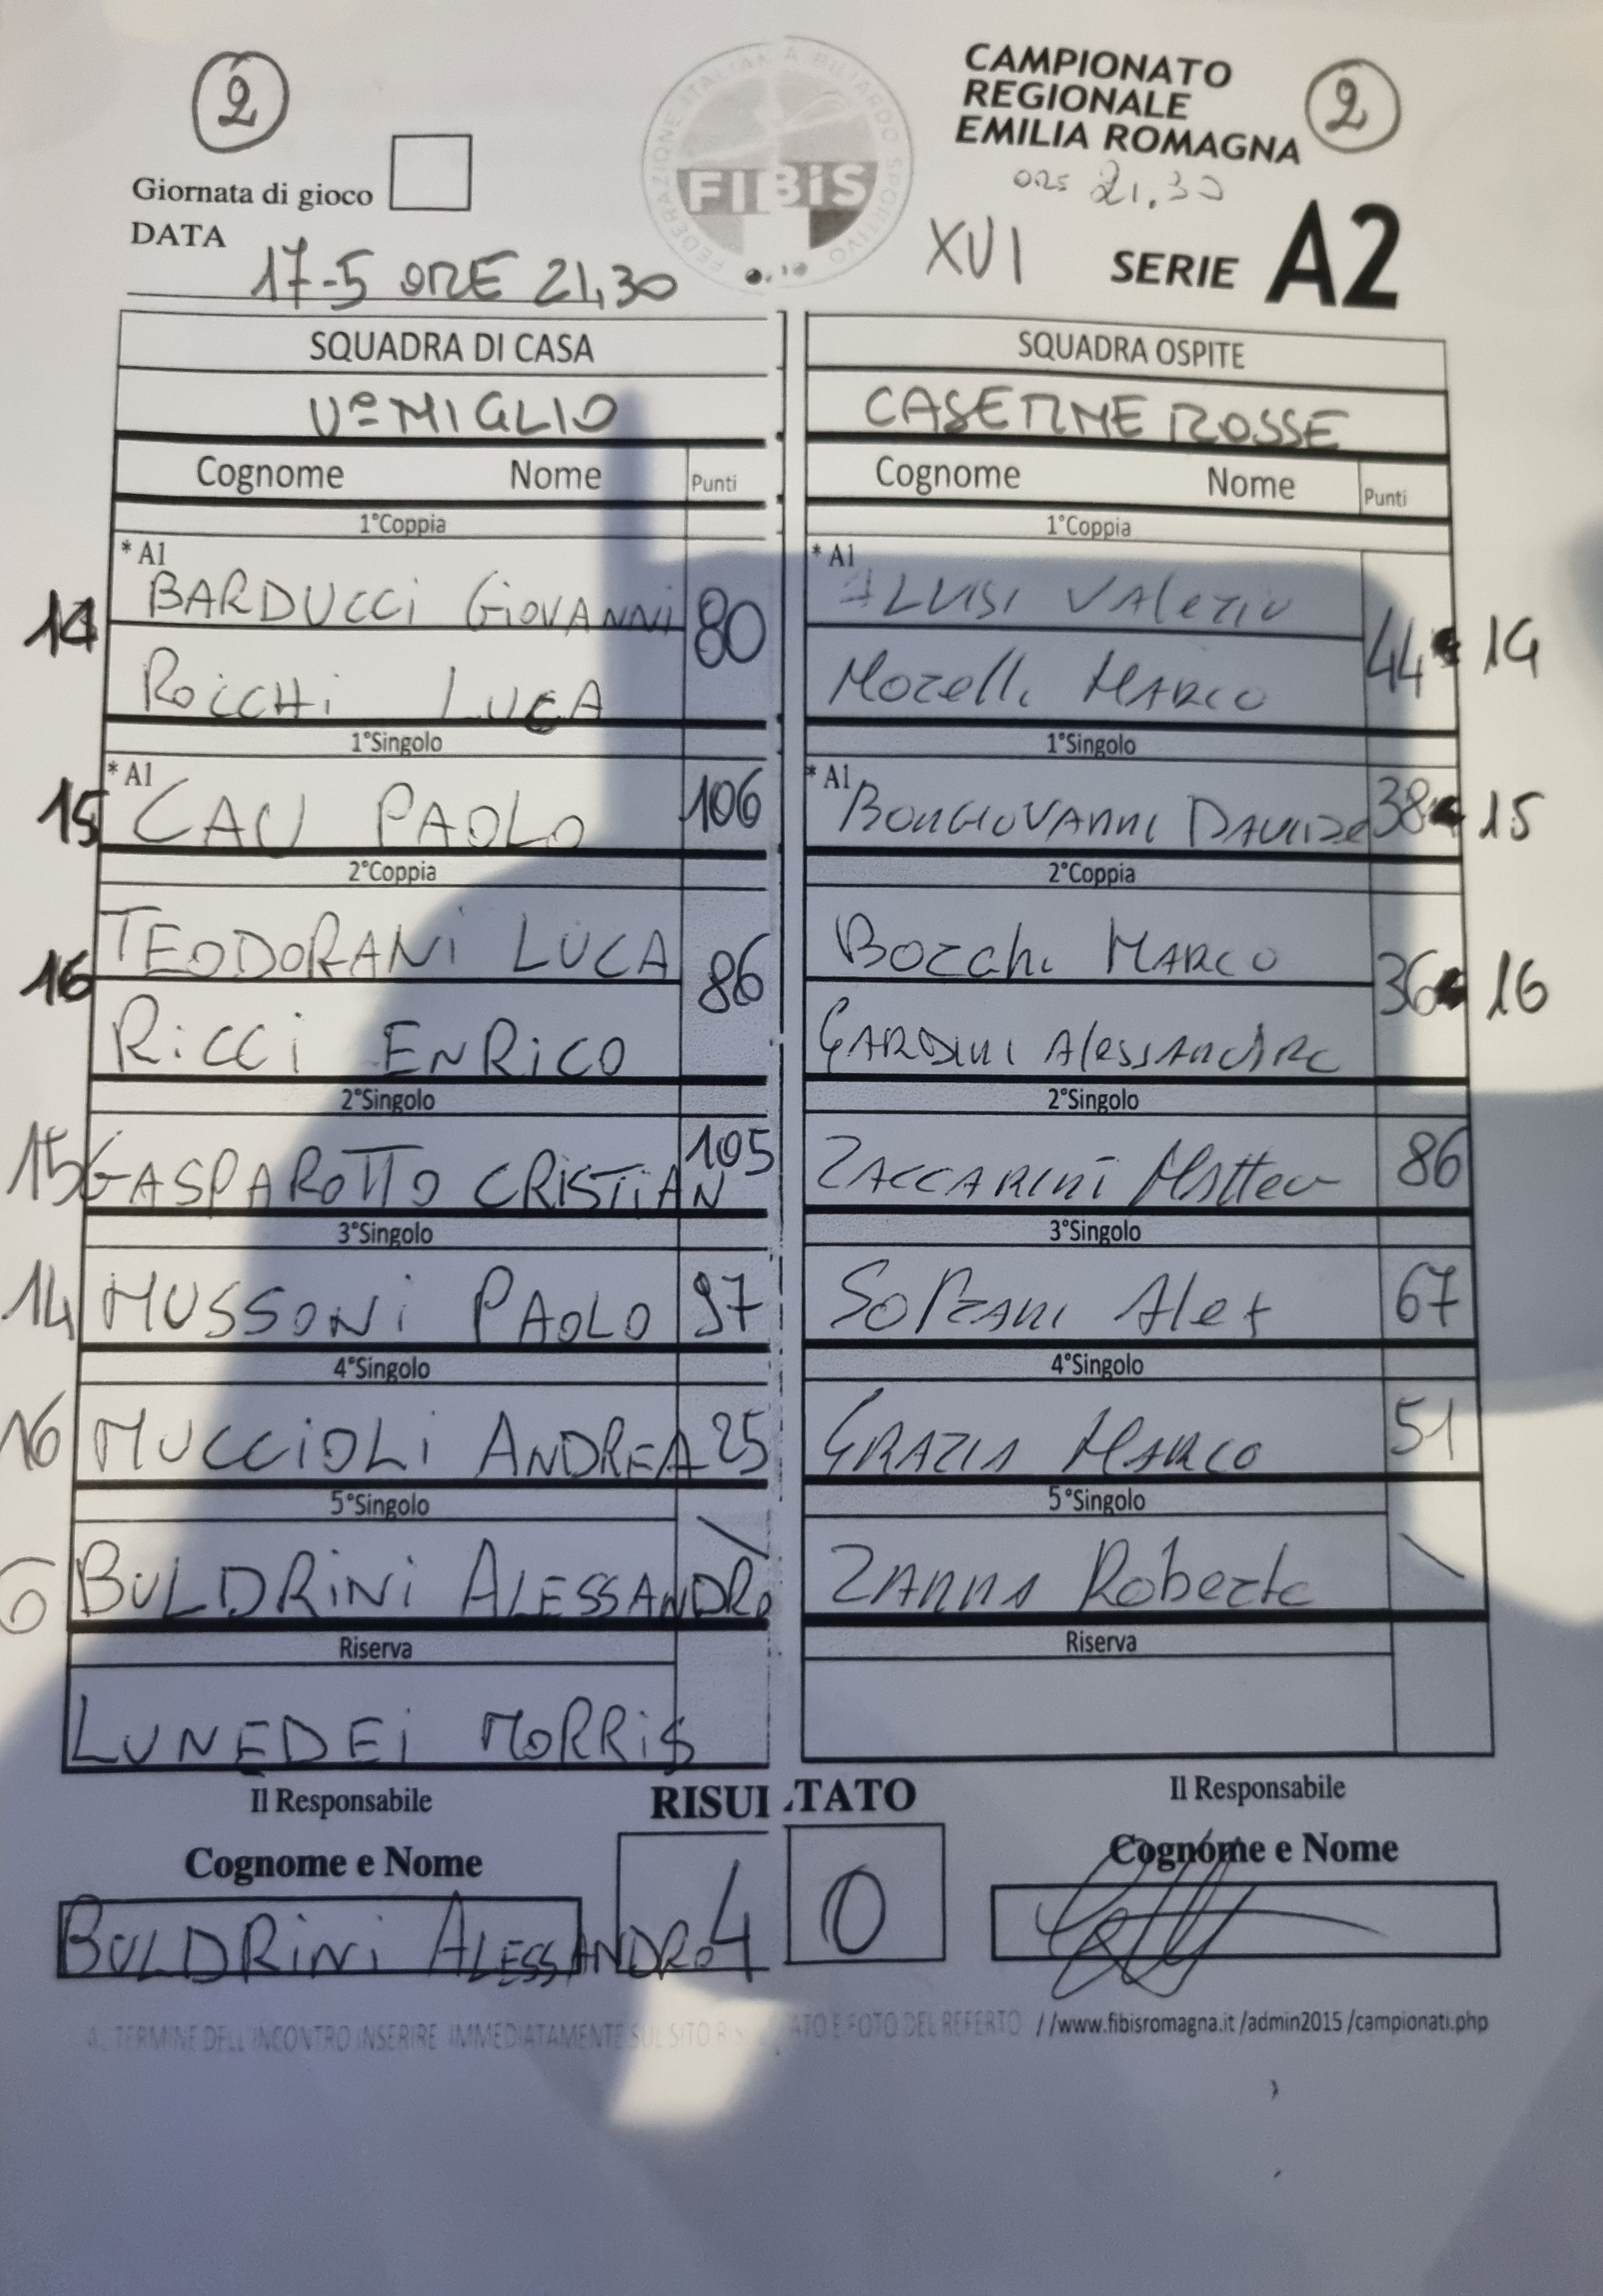 2
CAMPIONATO
REGIONALE
EMILIA ROMAGNA
2
Giornata di gioco
FEDERAZIONE ITALIANA BILIARDO SPORTIVO
FIBiS
21.30
DATA 17-5 ORE 21,30
XVI SERIE A2
SQUADRA DI CASA SQUADRA OSPITE
V° MIGLIO CASERME ROSSE
Cognome Nome Punti Cognome Nome Punti
1°Coppia 1°Coppia
*A1 *A1
14 BARDUCCi GiOVANNi 80 ALUISI VAleriu 44 14
RoiccHi LUCA Morelli MARCO
1°Singolo 1°Singolo
*A1 *A1
15 CAU PAOLO 106 BONGIOVANNI DAVIDE 38 15
2°Coppia 2°Coppia
16 TEODORANi LUCA 86 Bocchi MARCO 36 16
RiCCi ENRiCO GARDINI AlessANdRo
2°Singolo 2°Singolo
15 GASPAROTTO CRiSTiAN 105 ZACCARINI MAtteo 86
3°Singolo 3°Singolo
14 MUSSONi PAOLO 97 Alex 67
4°Singolo 4°Singolo
16 MUCCiOLi ANDREA 25 GRAZIA MARCO 51
5°Singolo 5°Singolo
6 BULDRiNi ALESSANDRO \ ZANNA Roberto \
Riserva Riserva
LUNEDEi MORRiS
Il Responsabile RISULTATO Il Responsabile
Cognome e Nome Cognome e Nome
BULDRiNi ALESSANDRO 4 0
AL TERMINE DELL'INCONTRO INSERIRE IMMEDIATAMENTE SUL SITO RISULTATO E FOTO DEL REFERTO //www.fibisromagna.it /admin2015 /campionati.php